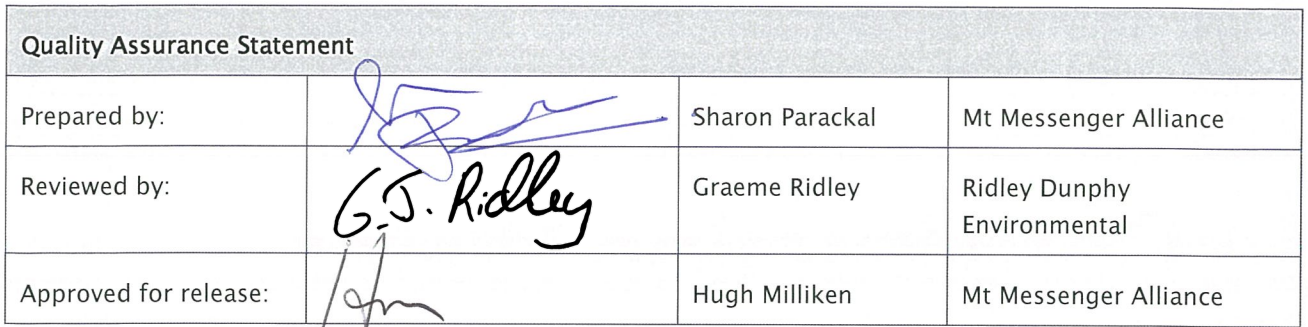 Quality Assurance Statement
Prepared by: Sharon Parackal Mt Messenger Alliance
Reviewed by: G.J. Ridley Graeme Ridley Ridley Dunphy
Environmental
Approved for release: Hugh Milliken Mt Messenger Alliance